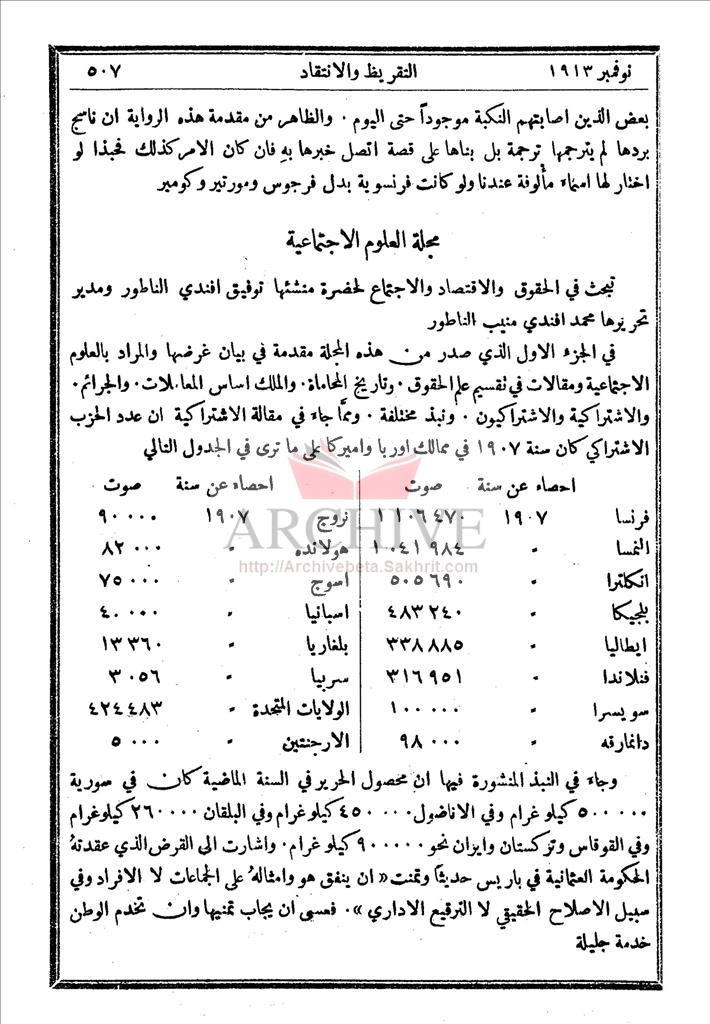 نوفمبر ١٩١٣ التقريظ والانتقاد ٥٠٧
بعض الذين اصابتهم النكبة موجوداً حتى اليوم ٠ والظاهر من مقدمة هذه الرواية ان ناسج
بردها لم يترجمها ترجمة بل بناها على قصة اتصل خبرها بهِ فان كان الامر كذلك فحبذا لو
اختار لها اسماء مألوفة عندنا ولو كانت فرنسوية بدل فرجوس ومورتير وكومير
مجلة العلوم الاجتماعية
تبحث في الحقوق والاقتصاد والاجتماع لحضرة منشئها توفيق افندي الناطور ومدير
تحريرها محمد افندي منيب الناطور
في الجزء الاول الذي صدر من هذه المجلة مقدمة في بيان غرضها والمراد بالعلوم
الاجتماعية ومقالات في تقسيم علم الحقوق ٠ وتاريخ المحاماة ٠ والملك اساس المعاملات ٠ والجرائم ٠
والاشتراكية والاشتراكيون ٠ ونبذ مختلفة ٠ ومما جاء في مقالة الاشتراكية ان عدد الحزب
الاشتراكي كان سنة ١٩٠٧ في ممالك اوربا واميركا على ما ترى في الجدول التالي
احصاء عن سنة صوت احصاء عن سنة صوت
فرنسا ١٩٠٧ ١١٠٦٤٧٠ نروج ١٩٠٧ ٩٠٠٠٠
النمسا " ١٠٤١٩٨٤ هولانده " ٨٢٠٠٠
انكلترا " ٥٠٥٦٩٠ اسوج " ٧٥٠٠٠
بلجيكا " ٤٨٣٢٤٠ اسبانيا " ٤٠٠٠٠
ايطاليا " ٣٣٨٨٨٥ بلغاريا " ١٣٣٦٠
فنلاندا " ٣١٦٩٥١ سربيا " ٣٠٥٦
سويسرا " ١٠٠٠٠٠ الولايات المتحدة " ٤٢٤٤٨٣
دانمارقه " ٩٨٠٠٠ الارجنتين " ٥٠٠٠
وجاء في النبذ المنشورة فيها ان محصول الحرير في السنة الماضية كان في سورية
٥٠٠٠٠٠ كيلو غرام وفي الاناضول ٤٥٠٠٠٠ كيلو غرام وفي البلقان ٢٦٠٠٠٠ كيلوغرام
وفي القوقاس وتركستان وايران نحو ٩٠٠٠٠٠ كيلو غرام ٠ واشارت الى القرض الذي عقدتهُ
الحكومة العثمانية في باريس حديثاً وتمنت « ان ينفق هو وامثالهُ على الجماعات لا الافراد وفي
سبيل الاصلاح الحقيقي لا الترقيع الاداري » ٠ فعسى ان يجاب تمنيها وان تخدم الوطن
خدمة جليلة
ARCHIVE
http://Archivebeta.Sakhrit.com